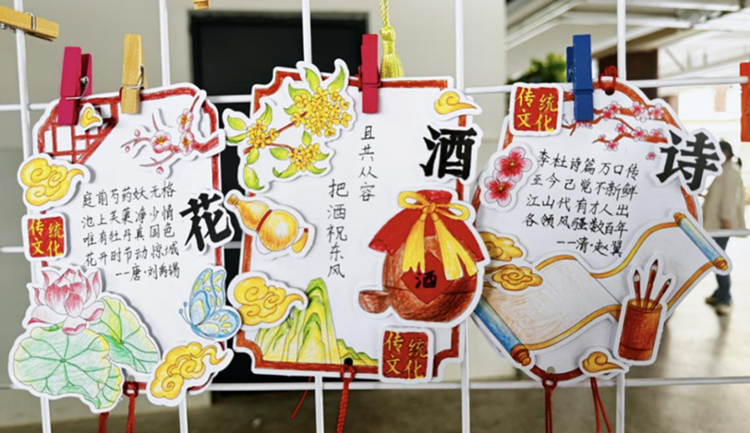 花
庭前芍药妖无格
池上芙蕖净少情
唯有牡丹真国色
花开时节动京城
--唐·刘禹锡
传统
文化
酒
且共从容
把酒祝东风
酒
传统
文化
传统
文化
诗
李杜诗篇万口传
至今已觉不新鲜
江山代有才人出
各领风骚数百年
--清·赵翼